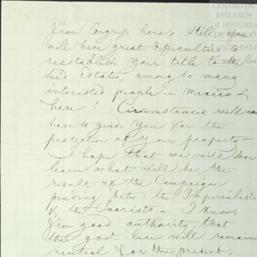 from Congress here, Still you
will have great difficulties to
reestablish your title to the
said Estates, among so many
interested people in Mexico &
here! Circumstances will now
have to guide you for the
protection of your property—
I hope that we will soon
learn what will be the
result of the Campaign
pending betw. the Imperialists
& the Juarists— I know,
from good authority, that
the gov't here will remain
neutral for the present,
CENTRO DE
ESTUDIOS
DE HISTORIA